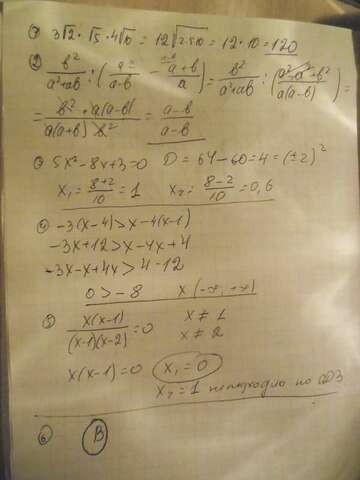 ① 3√2 · √5 · 4√10 = 12√2·5·10 = 12·10 = 120
② b²/(a²+ab) : (a/(a-b) - (a+b)/a) = b²/(a²+ab) : ((a²-a²+b²)/(a(a-b))) =
= (b² · a(a-b))/(a(a+b) b²) = (a-b)/(a-b)
③ 5x²-8x+3=0 D = 64-60=4=(±2)²
x₁ = (8+2)/10 = 1 x₂ = (8-2)/10 = 0,6
④ -3(x-4)>x-4(x-1)
-3x+12>x-4x+4
-3x-x+4x>4-12
0>-8 x(-∞; +∞)
⑤ x(x-1)/((x-1)(x-2)) = 0 x≠1
x≠2
x(x-1)=0 x₁=0
x₂=1 не подходит по ОДЗ
⑥ В